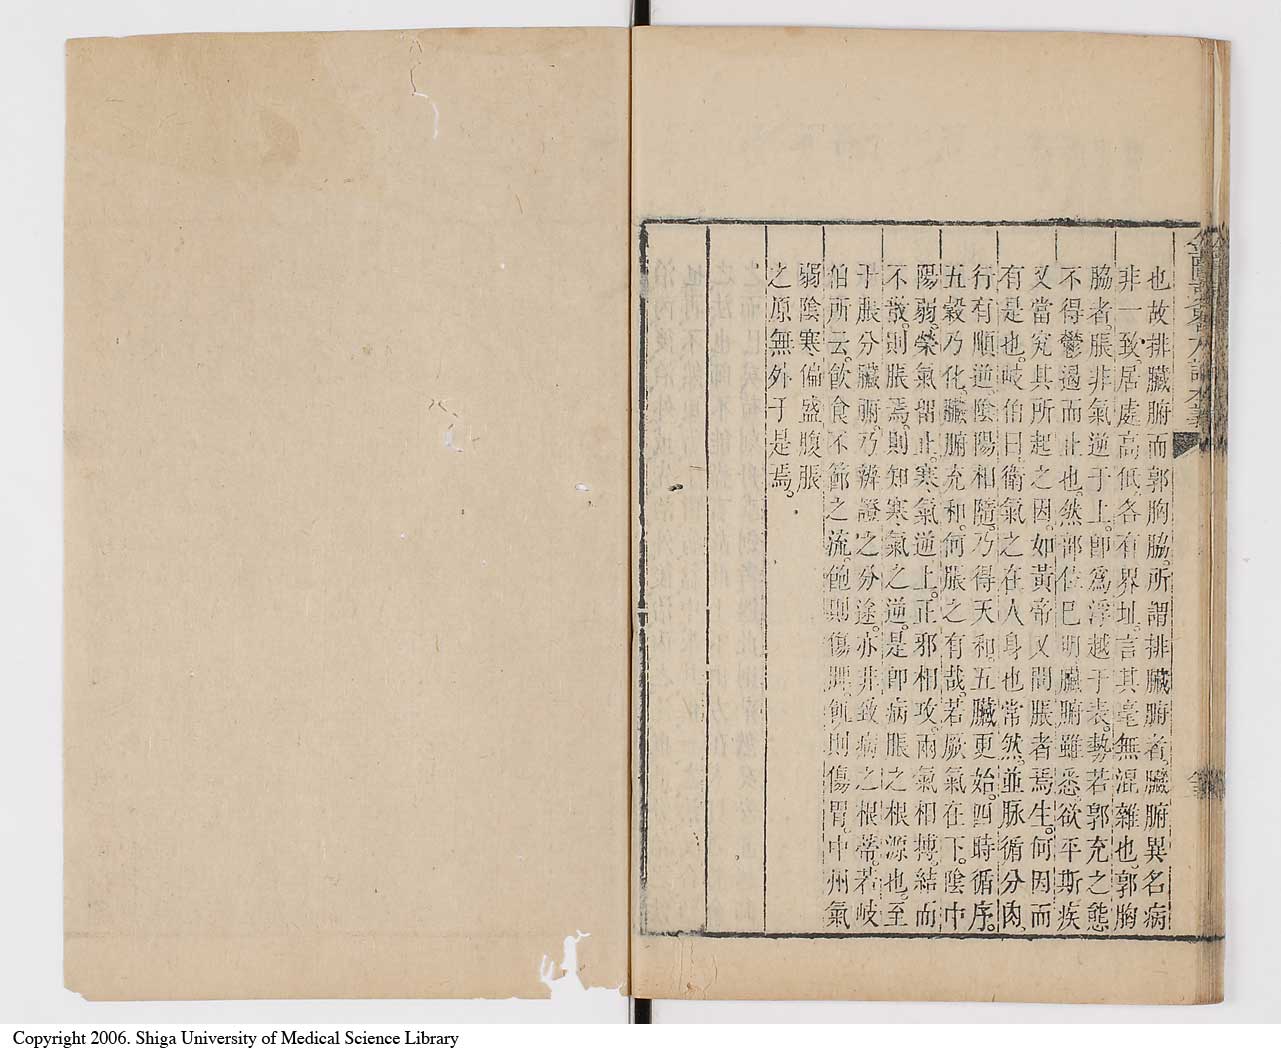 也故排臟腑而郭胸脇。所謂排臟腑者、臟腑異名病
非一致。居處高低、各有界址。言其毫無混雜也。郭胸
脇者。脹非氣逆于上。卽爲浮越于表。勢若郭充之態
不得鬱遏而止也。然部位已明、臟腑雖悉、欲平斯疾
又當究其所起之因。如黃帝又問脹者焉生。何因而
有是也。岐伯曰。衛氣之在人身也常然。並脉循分肉。
行有順逆。陰陽相隨。乃得天和。五臟更始。四時循序。
五穀乃化。臟腑充和。何脹之有哉。若厥氣在下。陰中
陽弱。榮氣留止。寒氣逆上。正邪相攻。兩氣相搏。結而
不散。則脹焉。則知寒氣之逆。是卽病脹之根源也。至
于脹分臟腑。乃辨證之分途。亦非致病之根蒂。若岐
伯所云。飲食不節之流。飽則傷脾飢則傷胃。中州氣
弱陰寒偏盛腹脹
之原無外于是焉。
Copyright 2006. Shiga University of Medical Science Library